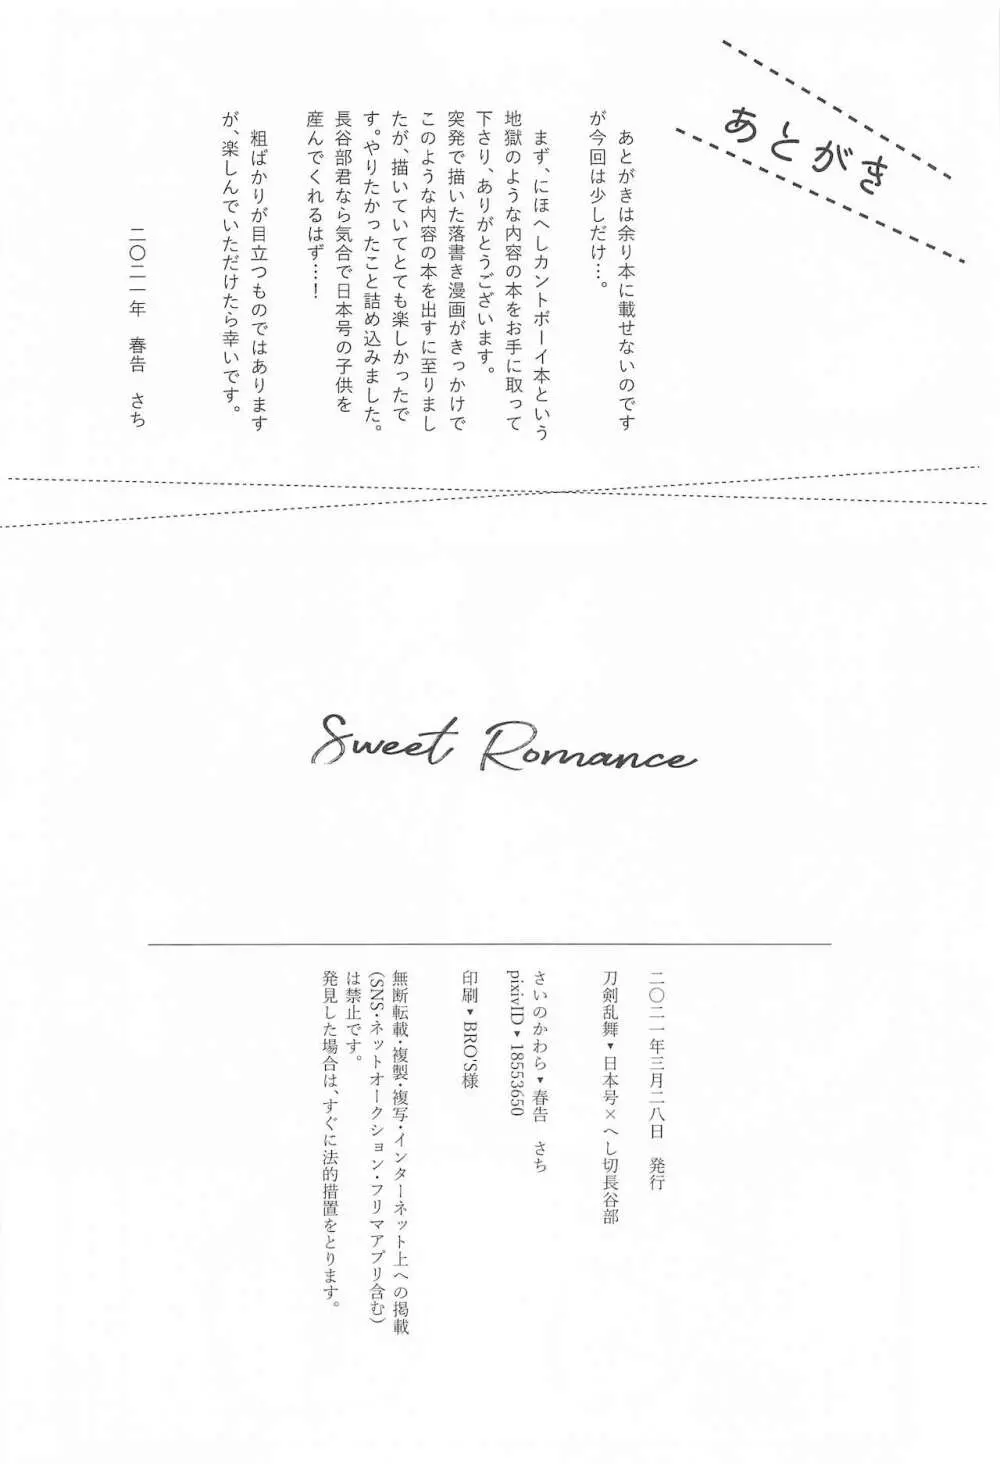 あとがき
あとがきは余り本に載せないのです
が今回は少しだけ…。
まず、にほへしカントボーイ本という
地獄のような内容の本をお手に取って
下さり、ありがとうございます。
突発で描いた落書き漫画がきっかけで
このような内容の本を出すに至りまし
たが、描いていてとても楽しかったで
す。やりたかったこと詰め込みました。
長谷部君なら気合で日本号の子供を
産んでくれるはず…！
粗ばかりが目立つものではあります
が、楽しんでいただけたら幸いです。
二〇二一年 春告 さち
Sweet Romance
二〇二一年三月二八日 発行
刀剣乱舞▼日本号×へし切長谷部
さいのかわら▼春告 さち
pixivID▼18553650
印刷▼BRO'S様
無断転載・複製・複写・インターネット上への掲載
(SNS・ネットオークション・フリマアプリ含む)
は禁止です。
発見した場合は、すぐに法的措置をとります。